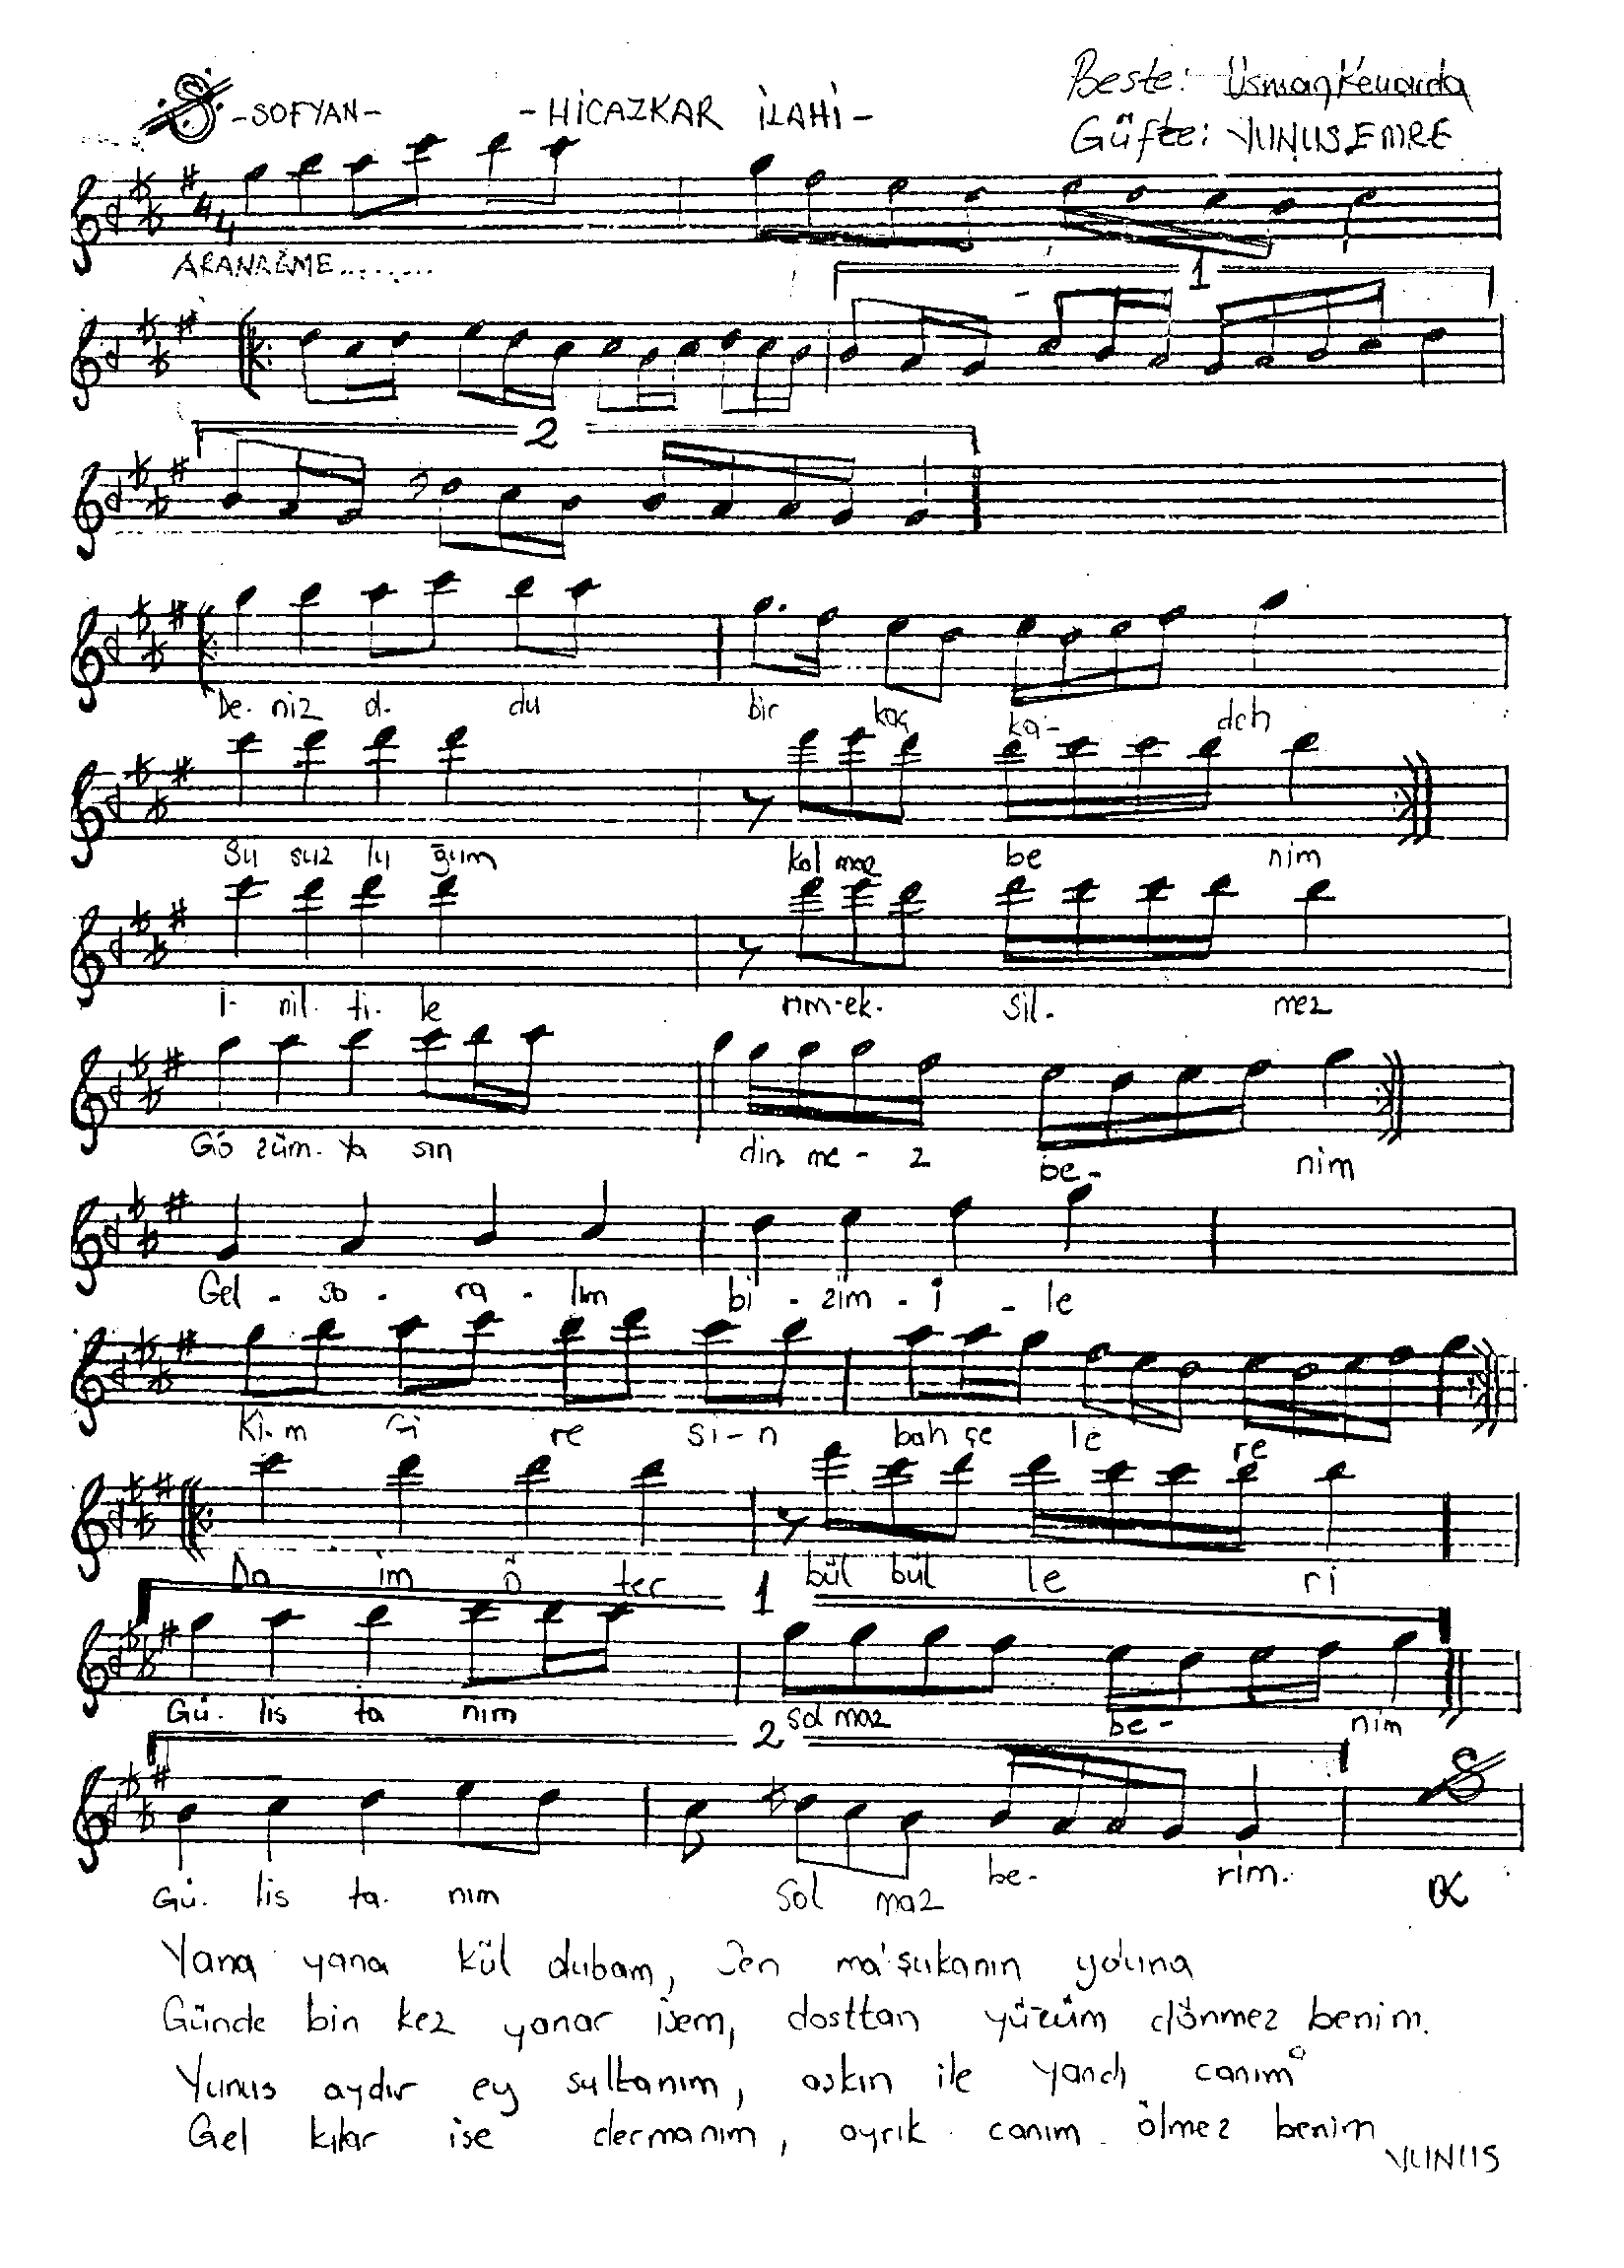 -SOFYAN- -HİCAZKAR İLAHİ-
Beste:
Güfte: YUNUS EMRE
4/4
ARANAĞME........
1
2
De. niz d. du bir kaç ka- deh
Su suz lu ğum kal maz be nim
İ- nil. ti. le rım-ek. sil. mez
Gö züm. ya sın din me - z be- nim
Gel - so - ra - lım bi - zim - i - le
Ki-m Gi re si-n bah çe le re
Da im ö ter bül bül le ri
1
Gü. lis ta nım sol maz be- nim
2
Gü. lis ta. nım Sol maz be- rim.
Yana yana kül dubam, Sen ma'şukanın yoluna
Günde bin kez yanar isem, dosttan yüzüm dönmez benim.
Yunus aydır ey sultanım, aşkın ile yandı canım
Gel kılar ise dermanım, ayrık canım ölmez benim
YUNUS